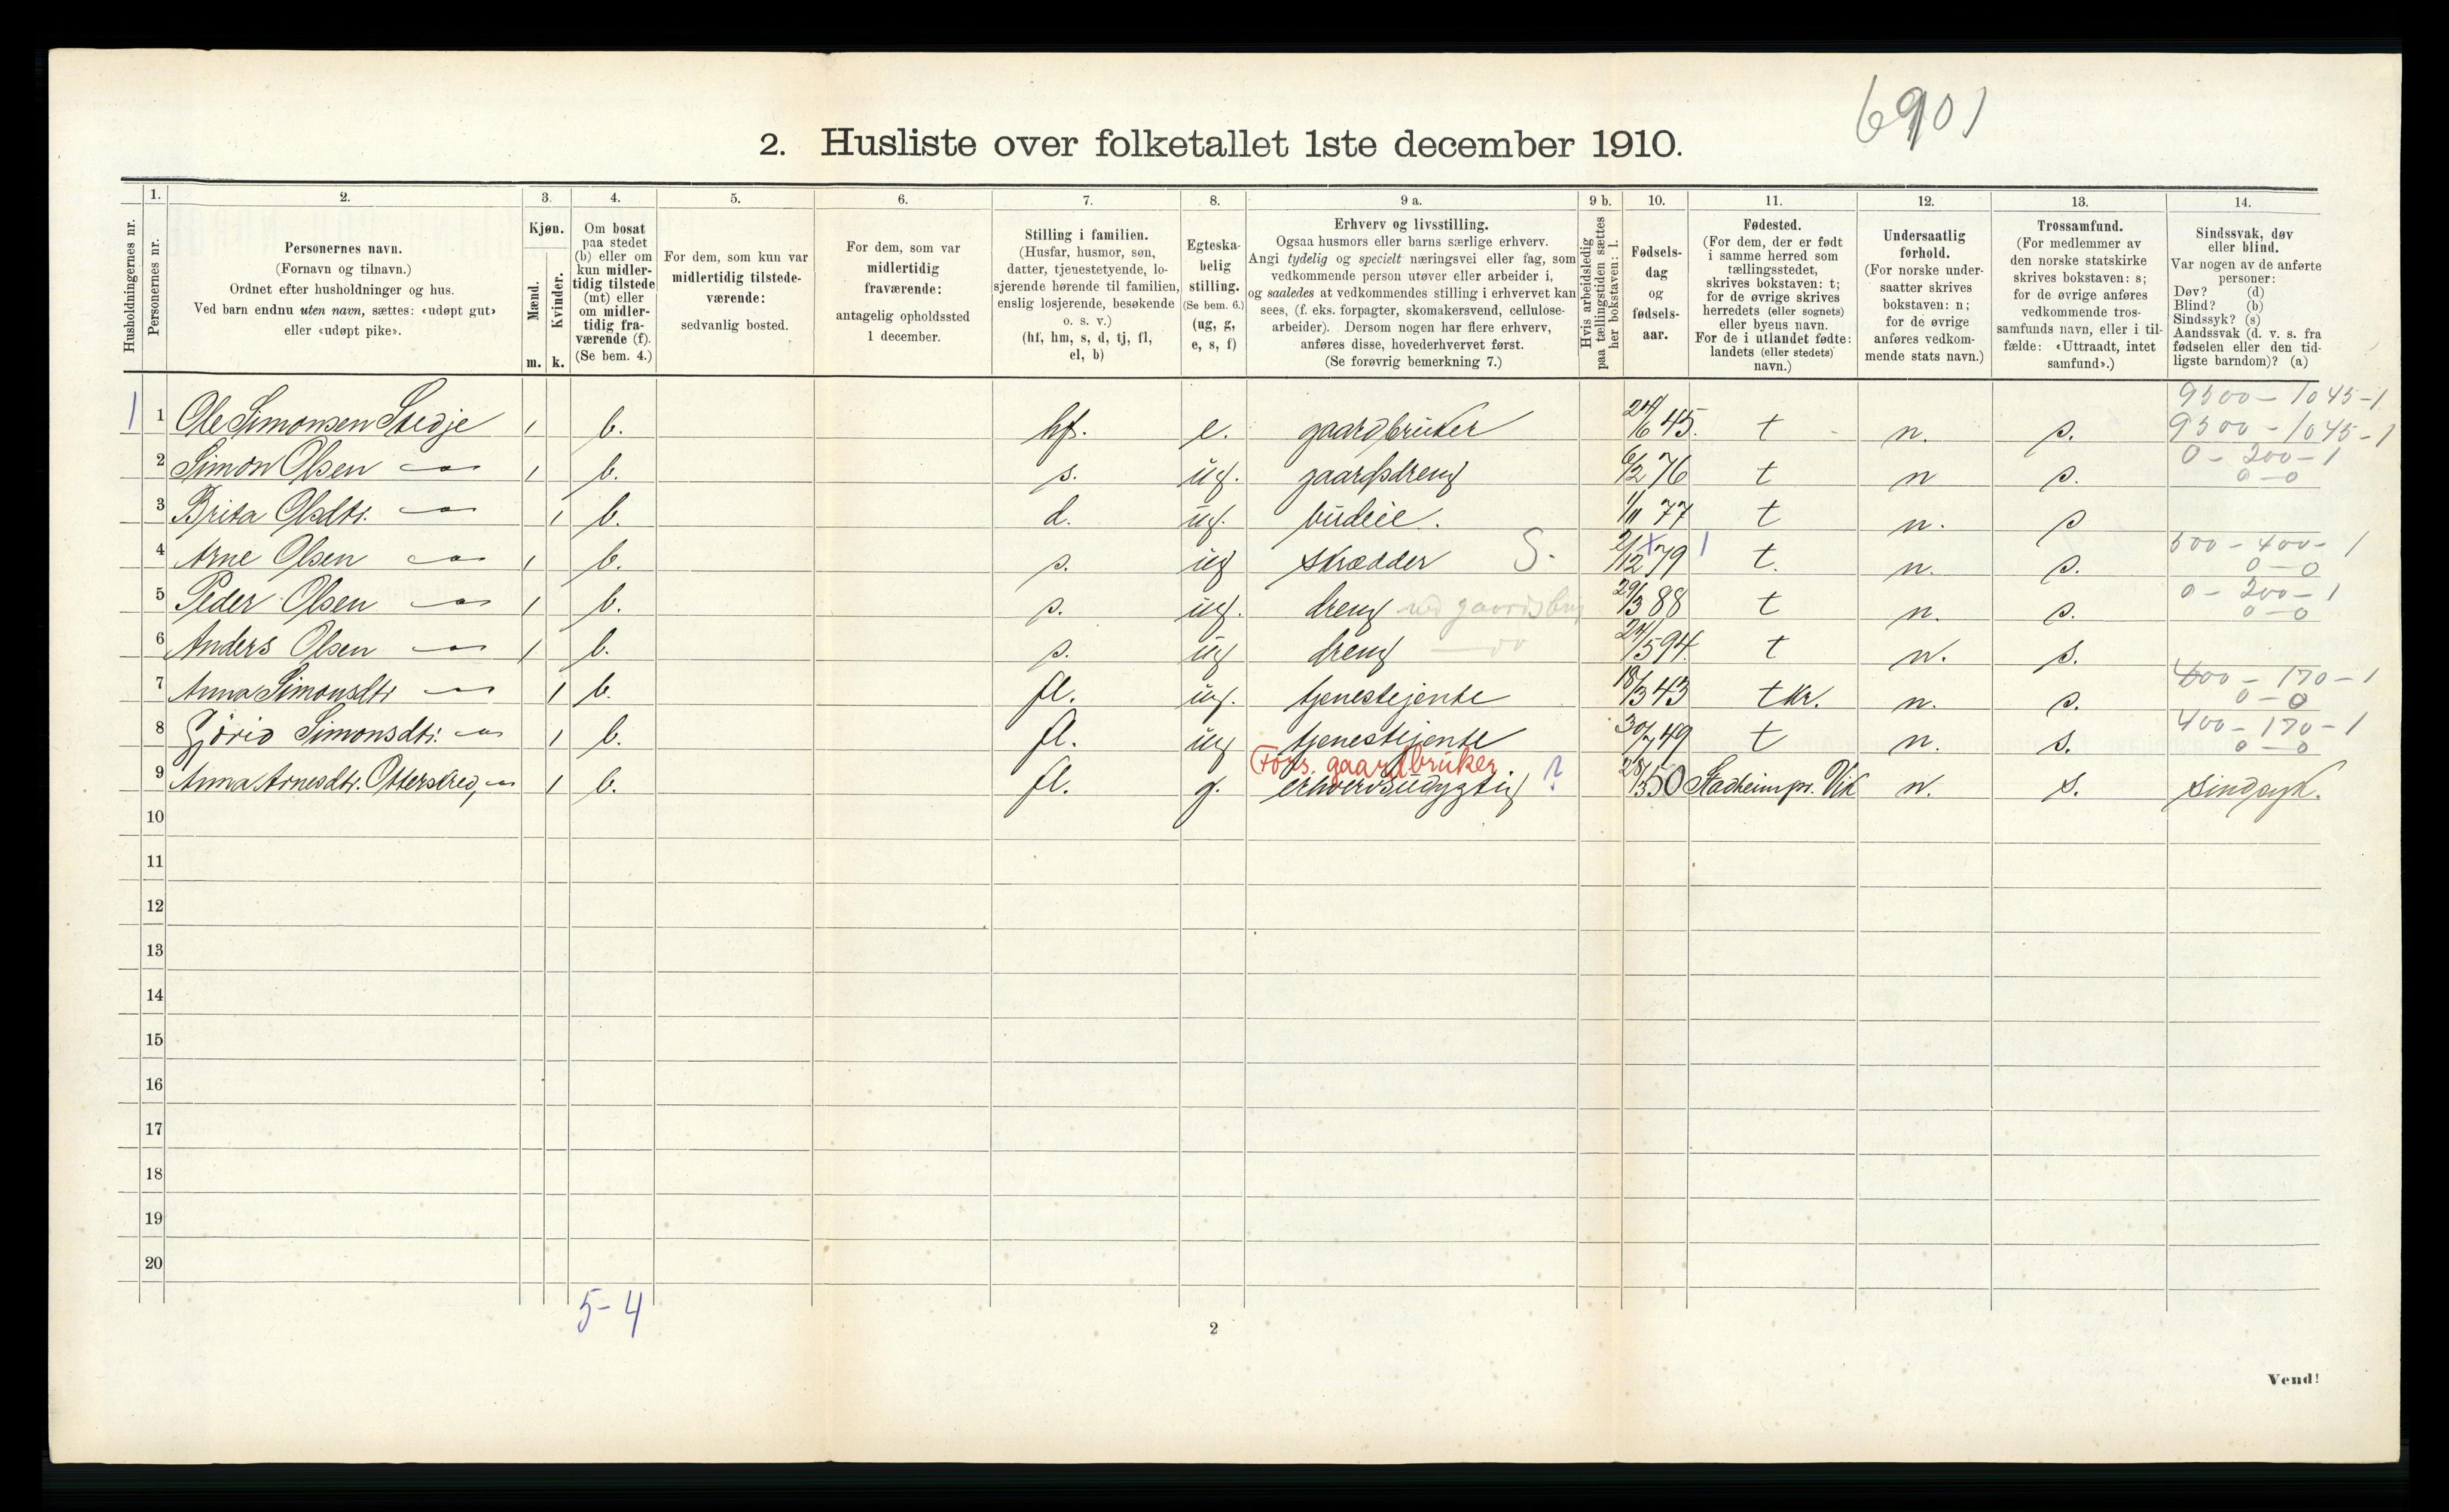 6901
2. Husliste over folketallet 1ste december 1910.
Husholdningernes nr.
1.
Personernes nr.
2.
Personernes navn.
(Fornavn og tilnavn.)
Ordnet efter husholdninger og hus.
Ved barn endnu uten navn, sættes: «udøpt gut»
eller «udøpt pike».
3.
Kjøn.
Mænd.
Kvinder.
m. k.
4.
Om bosat
paa stedet
(b) eller om
kun midler-
tidig tilstede
(mt) eller
om midler-
tidig fra-
værende (f).
(Se bem. 4.)
5.
For dem, som kun var
midlertidig tilstede-
værende:
sedvanlig bosted.
6.
For dem, som var
midlertidig
fraværende:
antagelig opholdssted
1 december.
7.
Stilling i familien.
(Husfar, husmor, søn,
datter, tjenestetyende, lo-
sjerende hørende til familien,
enslig losjerende, besøkende
o. s. v.)
(hf, hm, s, d, tj, fl,
el, b)
8.
Egteska-
belig
stilling.
(Se bem. 6.)
(ug, g,
e, s, f)
9 a.
Erhverv og livsstilling.
Ogsaa husmors eller barns særlige erhverv.
Angi tydelig og specielt næringsvei eller fag, som
vedkommende person utøver eller arbeider i,
og saaledes at vedkommendes stilling i erhvervet kan
sees, (f. eks. forpagter, skomakersvend, cellulose-
arbeider). Dersom nogen har flere erhverv,
anføres disse, hovederhvervet først.
(Se forøvrig bemerkning 7.)
9 b.
Hvis arbeidsledig
paa tællingstiden sættes
her bokstaven: l.
10.
Fødsels-
dag
og
fødsels-
aar.
11.
Fødested.
(For dem, der er født
i samme herred som
tællingsstedet,
skrives bokstaven: t;
for de øvrige skrives
herredets (eller sognets)
eller byens navn.
For de i utlandet fødte:
landets (eller stedets)
navn.)
12.
Undersaatlig
forhold.
(For norske under-
saatter skrives
bokstaven: n;
for de øvrige
anføres vedkom-
mende stats navn.)
13.
Trossamfund.
(For medlemmer av
den norske statskirke
skrives bokstaven: s;
for de øvrige anføres
vedkommende tros-
samfunds navn, eller i til-
fælde: «Uttraadt, intet
samfund».)
14.
Sindssvak, døv
eller blind.
Var nogen av de anførte
personer:
Døv? (d)
Blind? (b)
Sindssyk? (s)
Aandssvak (d. v. s. fra
fødselen eller den tid-
ligste barndom)? (a)
9500 - 1045 - 1
1 1 Ole Simonsen Stedje 1 b. hf. e. gaardbruker 24/6 45. t n. s. 9500 - 1045 - 1
0 - 200 - 1
2 Simon Olsen 1 b. s. ug. gaardsdreng 6/2 76 t n s. 0 - 0
3 Brita Olsdtr. 1 b. d. ug. budeie. 1/11 77 t n. s
500 - 400 - 1
4 Arne Olsen 1 b. s. ug skrædder S. 2/12 79 1 t. n. s. 0 - 0
0 - 200 - 1
5 Peder Olsen 1 b. s. ug. dreng ved gaardsbrug 29/3 88 t n. s. 0 - 0
6 Anders Olsen 1 b. s. ug dreng do 24/5 94 t n. s.
400 - 170 - 1
7 Anna Simonsdtr 1 b. fl. ug. tjenestejente 18/3 43 tkr. n. s. 0 - 0
400 - 170 - 1
8 Gjörid Simonsdtr. 1 b. fl. ug tjenestejente 30/7 49 t n. s. 0 - 0
Fors. gaardbruker.
9 Anna Arnesdtr. Otterskred, 1 b. fl. g. erhvervsudygtig ? 28/3 50 Stadheim pr. Vik n. s. sindsyk.
10
11
12
13
14
15
16
17
18
19
20
5 - 4
2
Vend!